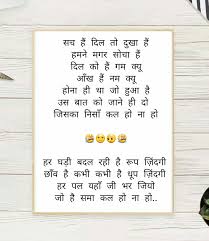 सच हैं दिल तो दुखा हैं
हमने मगर सोचा हैं
दिल को हैं गम क्यू
आँख हैं नम क्यू
होना ही था जो हुआ है
उस बात को जाने ही दो
जिसका निसाँ कल हो ना हो
हर घड़ी बदल रही है रूप ज़िंदगी
छाँव है कभी कभी है धूप ज़िंदगी
हर पल यहाँ जी भर जियो
जो है समा कल हो ना हो..